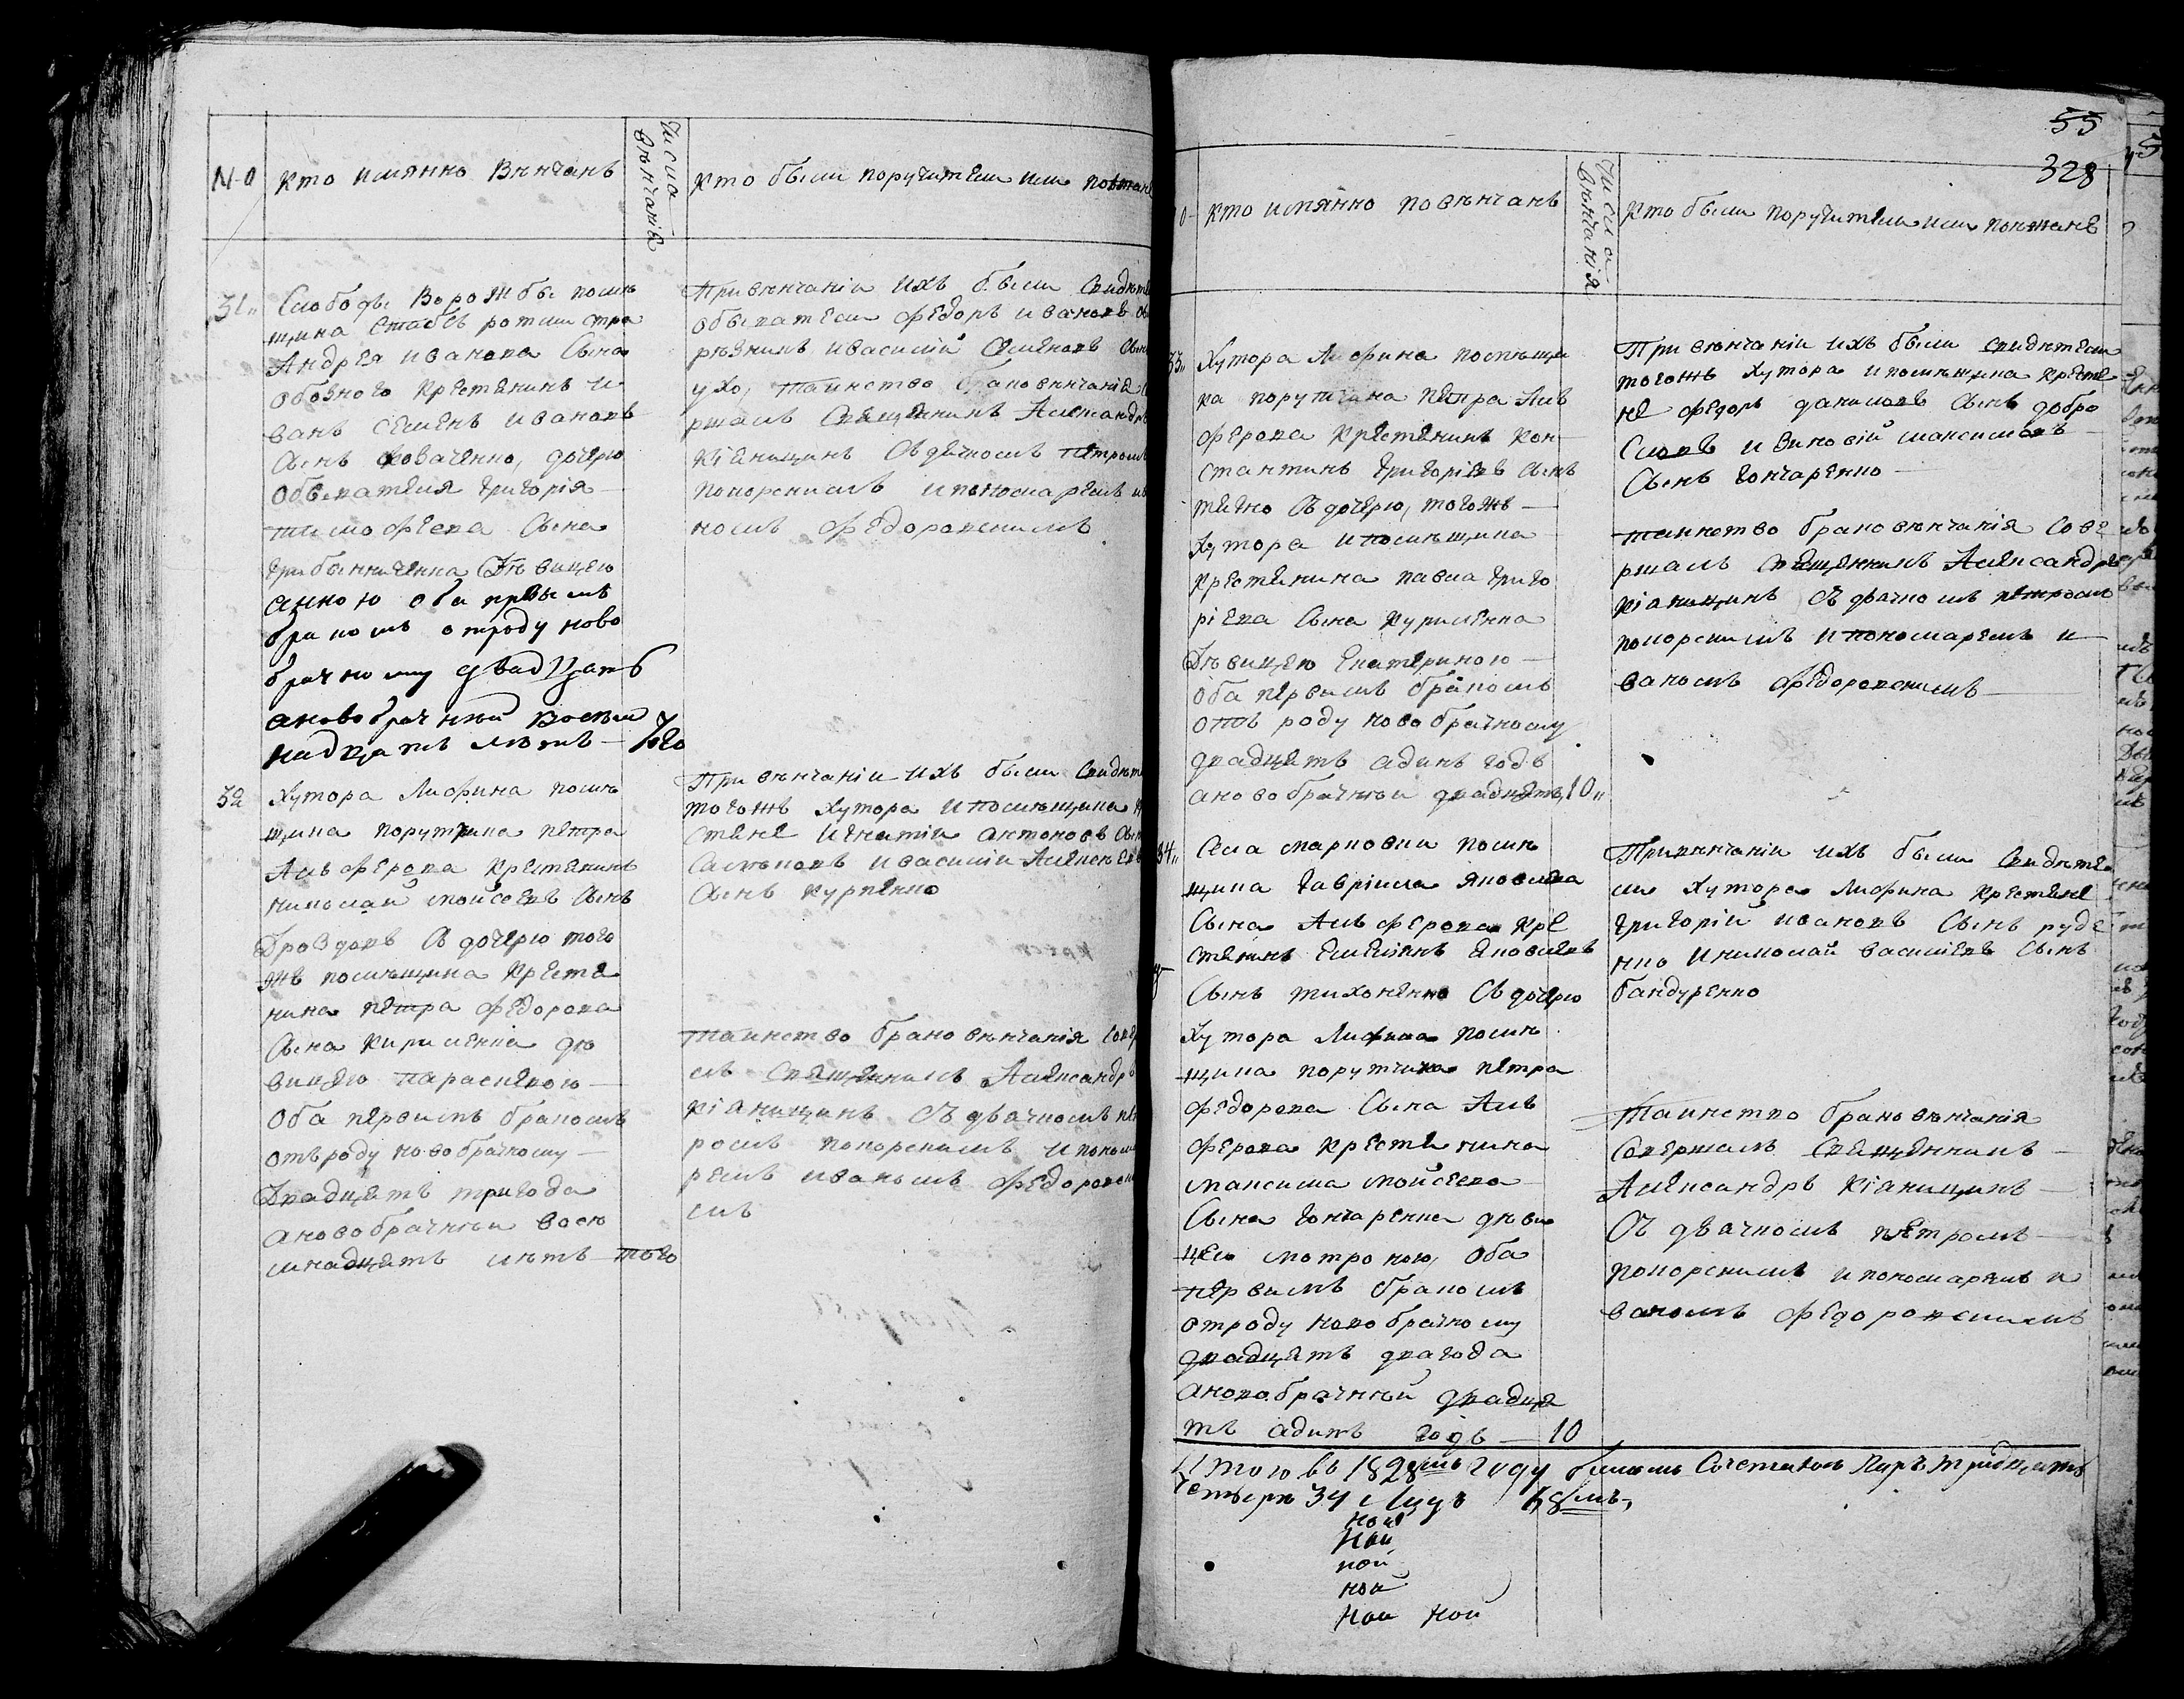 N-0
кто имянно Вѣнчанъ
Числа вѣнчанія
кто были поручители или поѣзжане
31"
Слободы Ворожбы помѣ
щика Стабсъ ротмистра
Андрея иванова Сына
обозного крестянинъ и
ванъ семенъ ивановъ
Сынъ коваченко, дочерю
обывателя григорія
тимофеева Сына
грибанниченка Дѣвицею
анною оба првымъ
бракомъ отроду ново
брачному двадцать
ановобрачный восем
надцать лѣтъ —
При вѣнчаніи ихъ были Свидѣте
обыватели федоръ ивановъ
рѣзникъ ивасилій Семеновъ Сын
ухо, таинство браковѣнчанія
ршалъ Священникъ Александръ
кіаницинъ Съ дячкомъ петромъ
покорскимъ ипономаремъ ив
номъ федоровскимъ
32
Хутора Лифина помѣ
щика порутчика петра
Алферова крестянинъ
николай мойсеевъ Сынъ
Дроздовъ Съ дочерю того
жъ помѣщика крестя
нина петра федорова
Сына кириленка дѣ
вицею параскевою
Оба первымъ бракомъ
отъроду новобрачному
Двадцять тригода
ановобрачной восе
мнадцять лѣтъ — того
При вѣнчаніи ихъ были Свидѣт
тогожъ хутора ипомѣщика
стяне игнатій антоновъ Сын
ивасилій Алексѣевъ
Сынъ курпенко
таинство браковѣнчанія Совер
лъ Священникъ Александръ
кіаницинъ Съ дячкомъ пет
ромъ покорскимъ ипоном
ремъ иваномъ федоровски
мъ
55
328
кто имянно повѣнчанъ
Числа вѣнчанія
Кто были поручители или поѣзжане
33"
Хутора Лифина помѣщи
ка порутчика петра Ал
ферова крестянинъ кон
стантинъ григоріевъ Сынъ
Съ дочерю, тогожъ
хутора ипомѣщика
крестянина павла григо
ріева Сына куриленка
Дѣвицею Екатериною
оба первымъ бракомъ
отъ роду новобрачному
двадцять адинъ годъ
ановобрачной двадцять, 10"
При вѣнчаніи ихъ были свидѣтели
тогожъ хутора ипомѣщика крестя
не федоръ даниловъ Сынъ добро
Словъ изиновій максимовъ
Сынъ гончаренко
таинство браковѣнчанія Сове
ршалъ Священникъ Александръ
кіаницинъ Съ дячкомъ петромъ
покорскимъ ипономаремъ и
ваномъ федоровскимъ
34"
Села марковки помѣ
щика гавріила яковлева
Сына Алферова кре
стянинъ Емелянъ яковлевъ
Сынъ тихоненко Съ дочерю
Хутора Лифина помѣ
щика порутчика петра
федорова Сына Ал
ферова крестянина
максима мойсеева
Сына гончаренка дѣви
цею мотроною, Оба
первымъ бракомъ
отроду новобрачному
двадцять двагода
ановобрачной двадця
ть адинъ годъ — 10
Привѣнчаніи ихъ были Свидѣте
ли хутора Лифина крестяне
григорій ивановъ Сынъ руде
нко иниколай василіевъ Сынъ
бандуренко
Таинство браковѣнчанія
Совершалъ Священникъ
Александръ кіаницинъ
Съ дячкомъ петромъ
покорскимъ ипономаремъ и
ваномъ федоровскимъ
Итого въ 1828мъ году бракомъ Сочетанось паръ тридцять
четыри 34 68мъ,
ной
ной
ной
ной
ной ной